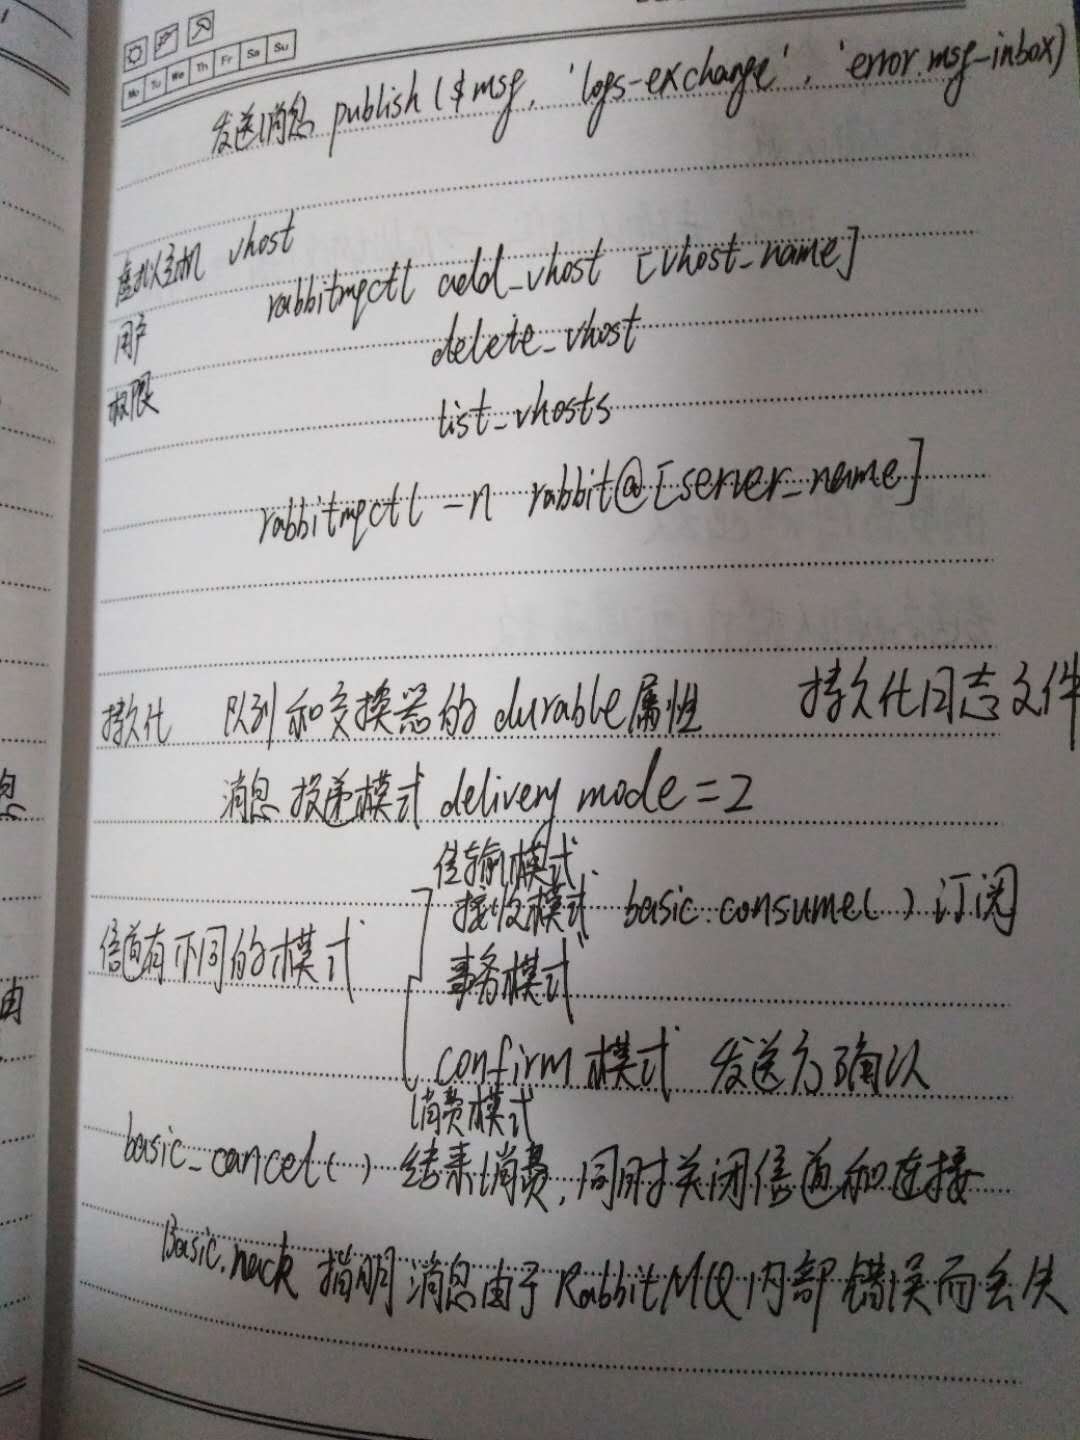 Mo Tu We Th Fr Sa Su
发送消息 publish ($msg, 'logs-exchange', 'error.msg-inbox)
虚拟主机 vhost
rabbitmqctl add_vhost [vhost_name]
用户
delete_vhost
权限
list_vhosts
rabbitmqctl -n rabbit@[server_name]
持久化 队列和交换器的durable属性 持久化日志文件
消息投递模式 delivery mode=2
传输模式
接收模式 basic.consume() 订阅
信道有不同的模式
事务模式
confirm模式 发送方确认
消费模式
basic_cancel() 结束消费,同时关闭信道和连接
Basic.nack 指明消息由于RabbitMQ内部错误而丢失
息
由